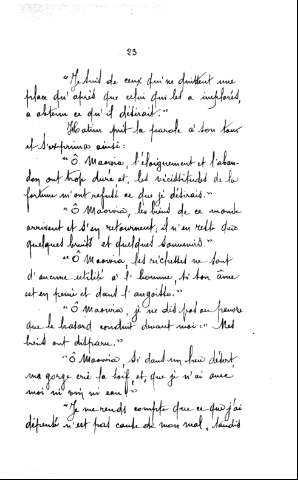 23
"Je suis de ceux qui ne quittent une
place qu'après que celui qui les a implorés,
a obtenu ce qu'il désirait."
Hatim prit la parole à son tour
et s'exprima ainsi:
"Ô Maovia, l'éloignement et l'aban-
don ont trop duré et, les vicissitudes de la
fortune m'ont refusé ce que je désirais."
"Ô Maovia, les biens de ce monde
arrivent et s'en retournent, il n'en reste que
quelques bruits et quelques souvenirs."
"Ô Maovia, les richesses ne sont
d'aucune utilité à l'homme, si son âme
est en peine et dans l'angoisse."
"Ô Maovia, je ne dis pas au pauvre
que le hasard conduit devant moi: "Mes
biens ont disparu."
"Ô Maovia, si dans un lieu désert,
ma gorge crie la soif, et, que je n'ai avec
moi ni vin, ni eau,"
"Je me rends compte que ce que j'ai
dépensé n'est pas cause de mon mal, tandis